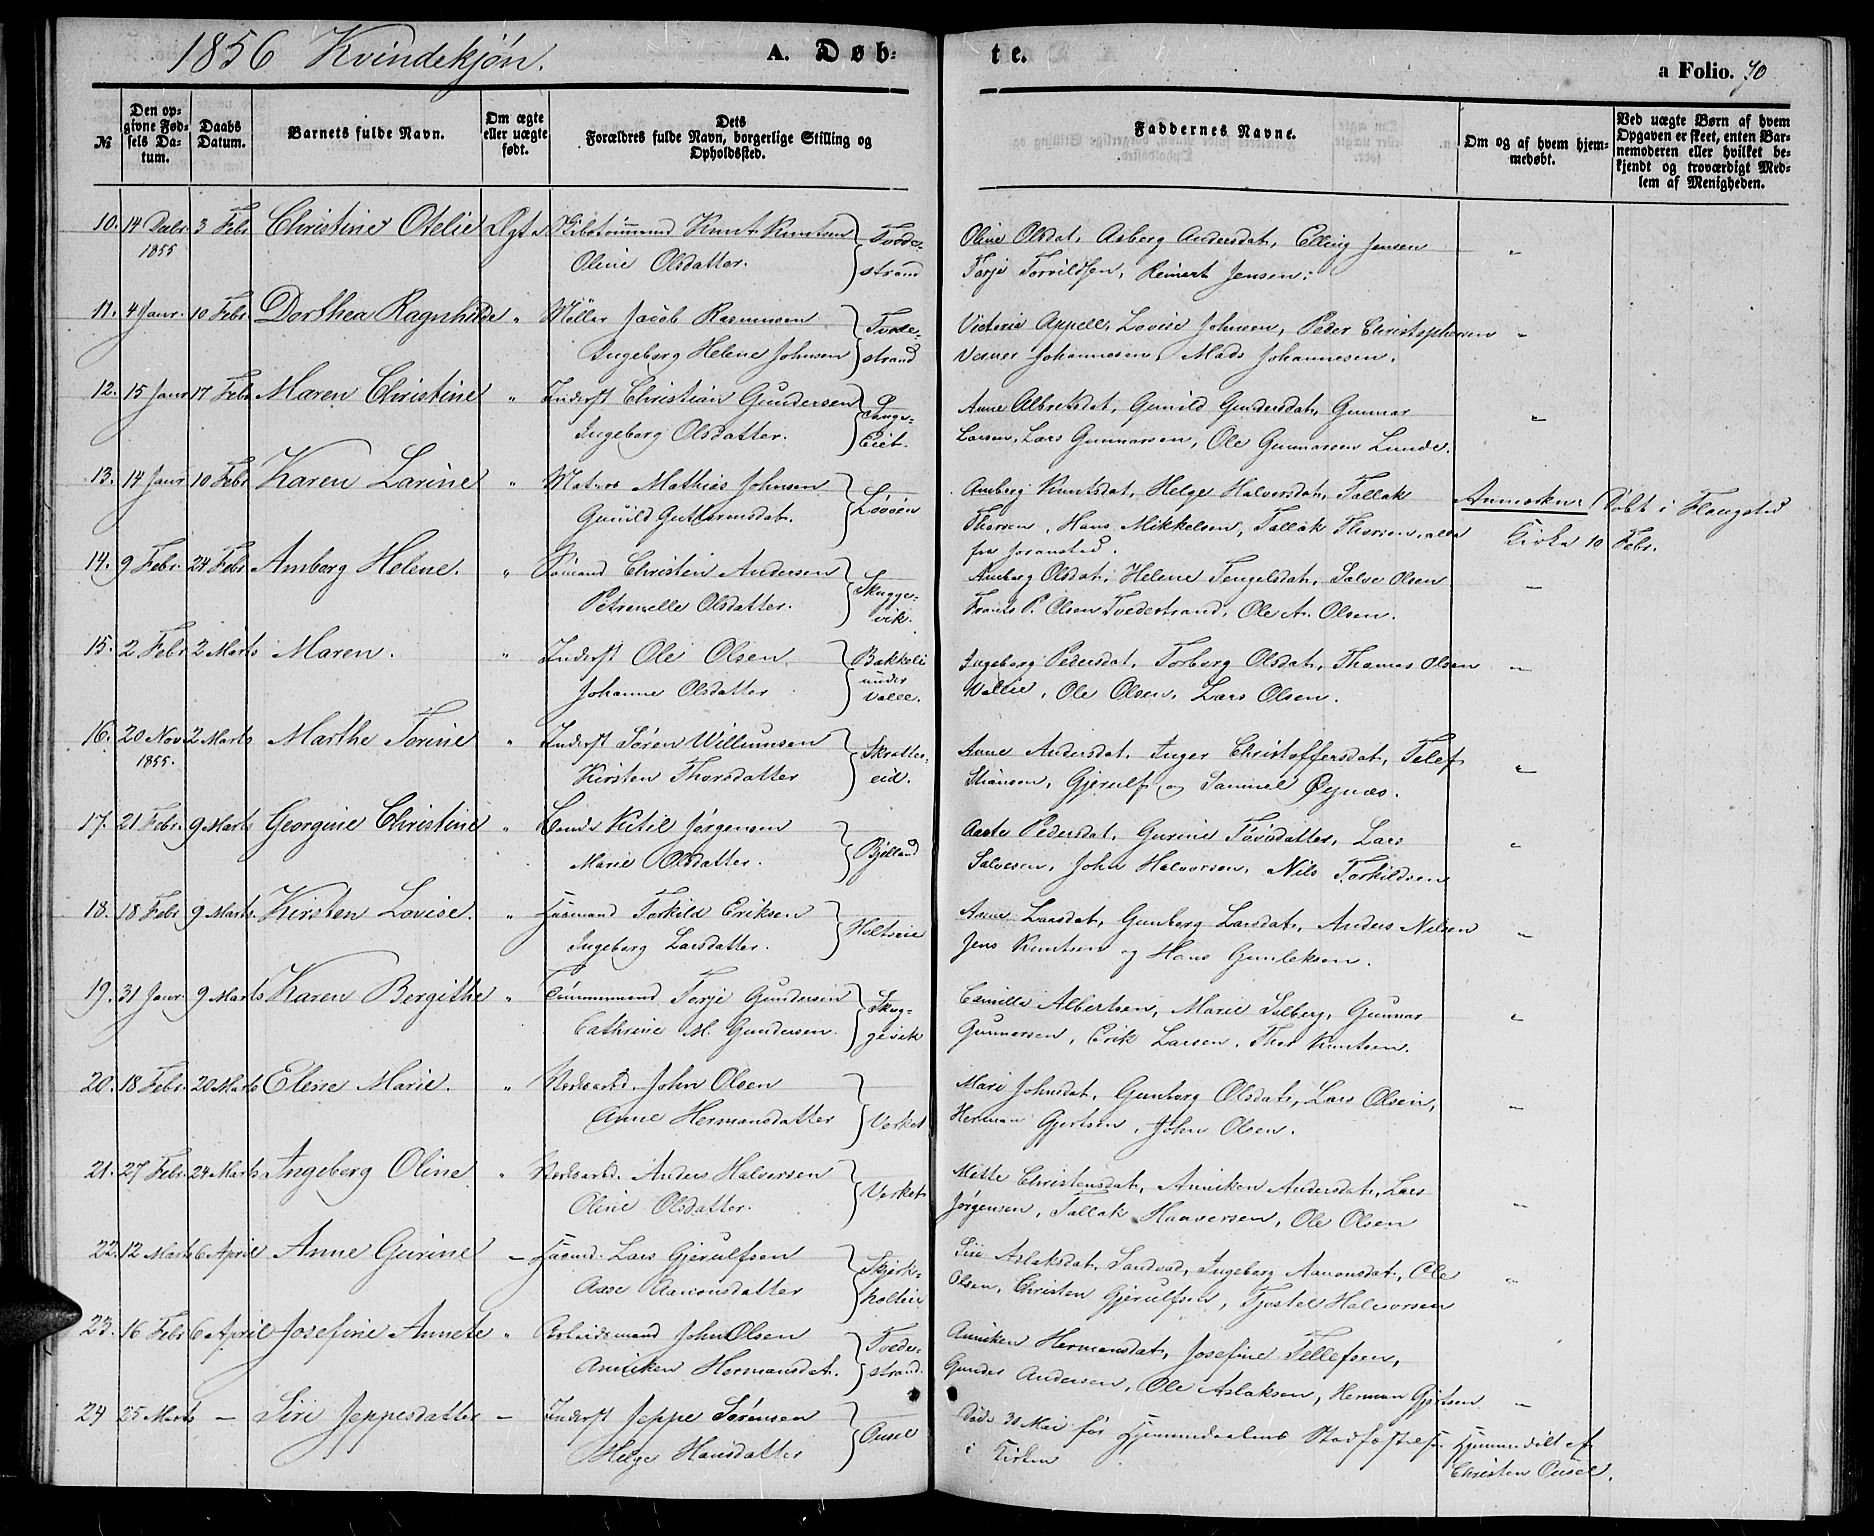 1856 Kvindekjøn.
A. Døb-
te.
a Folio. 70
№
Den opgivne Fødsels Datum.
Daabs Datum.
Barnets fulde Navn.
Om ægte eller uægte født.
Dets Forældres fulde Navn, borgerlige Stilling og Opholdssted.
Faddernes Navne.
Om og af hvem hjemmedøbt.
Ved uægte Børn af hvem Opgaven er skeet, enten Barnemoderen eller hvilket bekjendt og troværdigt Medlem af Menigheden.
10. 14 Decbr 1855 3 Febr Christine Otelie Ægte Knut Knutsen Tvede-
Oline Olsdatter. strand
Oline Olsdat, Asberg Andersdat, Elling Jensen "
Terje Torvildsen, Reinert Jensen.
11. 4 Janr. 10 Febr. Dorthea Ragnhilde " Møller Jacob Rasmussen Tvede-
Ingeborg Helene Johnsen strand
Victoria Appell, Lovise Johnsen, Peder Christophersen "
Verner Johannesen, Mads Johannesen.
12. 15 Janr 17 Febr Maren Christine " Inderst Christian Gundersen Lange-
Ingeborg Olsdatter. Eid.
Anne Albretsdat, Gunild Gundersdat, Gunnar "
Larsen, Lars Gunnarsen, Ole Gunnarsen Lunde.
13. 14 Janr 10 Febr Karen Larine " Matros Mathias Johnsen
Gunild Guttormsdat.
Amberg Knutsdat, Helge Halversdat, Tallak Anmærkn: Døbt i Flangstad
Thorsen, Hans Mikkelsen, Tallak Thorsen, alle Kirke 10 Febr.
fra
14. 9 Febr. 24 Febr Amborg Helene. " Sømand Christen Andersen Skugge-
Petronelle Olsdatter. vik.
Amborg Olsdat, Helene Tengelsdat, Salve Olsen "
Frants P. Olsen Tvedestrand, Ole A. Olsen.
15. 2 Febr 2 Marts Maren. " Inderst Ole Olsen Bakkeli
Johanne Olsdatter under Valle.
Ingeborg Pedersdat, Torborg Olsdat, Thomas Olsen "
Vallie, Ole Olsen, Lars Olsen.
16. 20 Nov 1855. 2 Marts Marthe Torine " Inderst Søren Willumsen Skratte-
Kirsten Thorsdatter eid.
Anne Andersdat, Inger Christoffersdat, Telef "
Stiansen, Gjerulf og Samuel Øynæs.
17. 21 Febr. 9 Marts Georgine Christine " Gaardm Ketil Jørgensen Bjelland
Marie Olsdatter.
Aaste Pedersdat, Gurine Tovsdatter, Lars "
Salvesen, John Halvorsen, Nils Torkildsen
18. 18 Febr 9 Marts. Kirsten Lovise. " Husmand Torkild Eriksen Holtseie
Ingeborg Larsdatter.
Anne Larsdat, Gunborg Larsdat, Anders Nilsen "
Jens Knutsen og Hans Gunleksen.
19. 31 Janr. 9 Marts Karen Bergithe " Tømmermand Terje Gundersen Skug-
Cathrine M. Gundersen. gevik
Camilla Albertsen, Marie Solberg, Gunnar "
Gunnarsen, Erik Larsen, Thor Knutsen.
20. 18 Febr. 20 Marts Elene Marie. " Verksarbd. John Olsen Verket
Anne Hermansdatter
Mari Johnsdat, Gunborg Olsdat, Lars Olsen, "
Herman Gjertsen, John Olsen.
21. 27 Febr. 24 Marts Ingeborg Oline " Verksarbd. Anders Halversen Verket
Oline Olsdatter.
Mette Christensdat, Anniken Andersdat, Lars "
Jørgensen, Tallak Haaversen, Ole Olsen
22. 12 Marts 6 April Anne Gurine – Husmd. Lars Gjerulfsen Skjerk-
Aase Aanonsdatter holten
Siri Aslaksdat, Sandvad, Ingeborg Aanonsdat, Ole "
Olsen, Christen Gjerulfsen, Tjostel Halvorsen
23. 16 Febr 6 April Josefine Annete " Arbeidsmand John Olsen Tvede-
Anniken Hermansdat. strand.
Anniken Hermansdat, Josefine Tellefsen,
Gunder Andersen, Ole Aslaksen, Herman Gjertsen "
24 25 Marts – Siri Jeppesdatter – Inderst Jeppe Sørensen Ousel
Helge Hansdatter
Døde 30 Mai før Hjemmedaabens Stadfæstelse Hjemmedøbt af
i Kirken Christen Ousel.